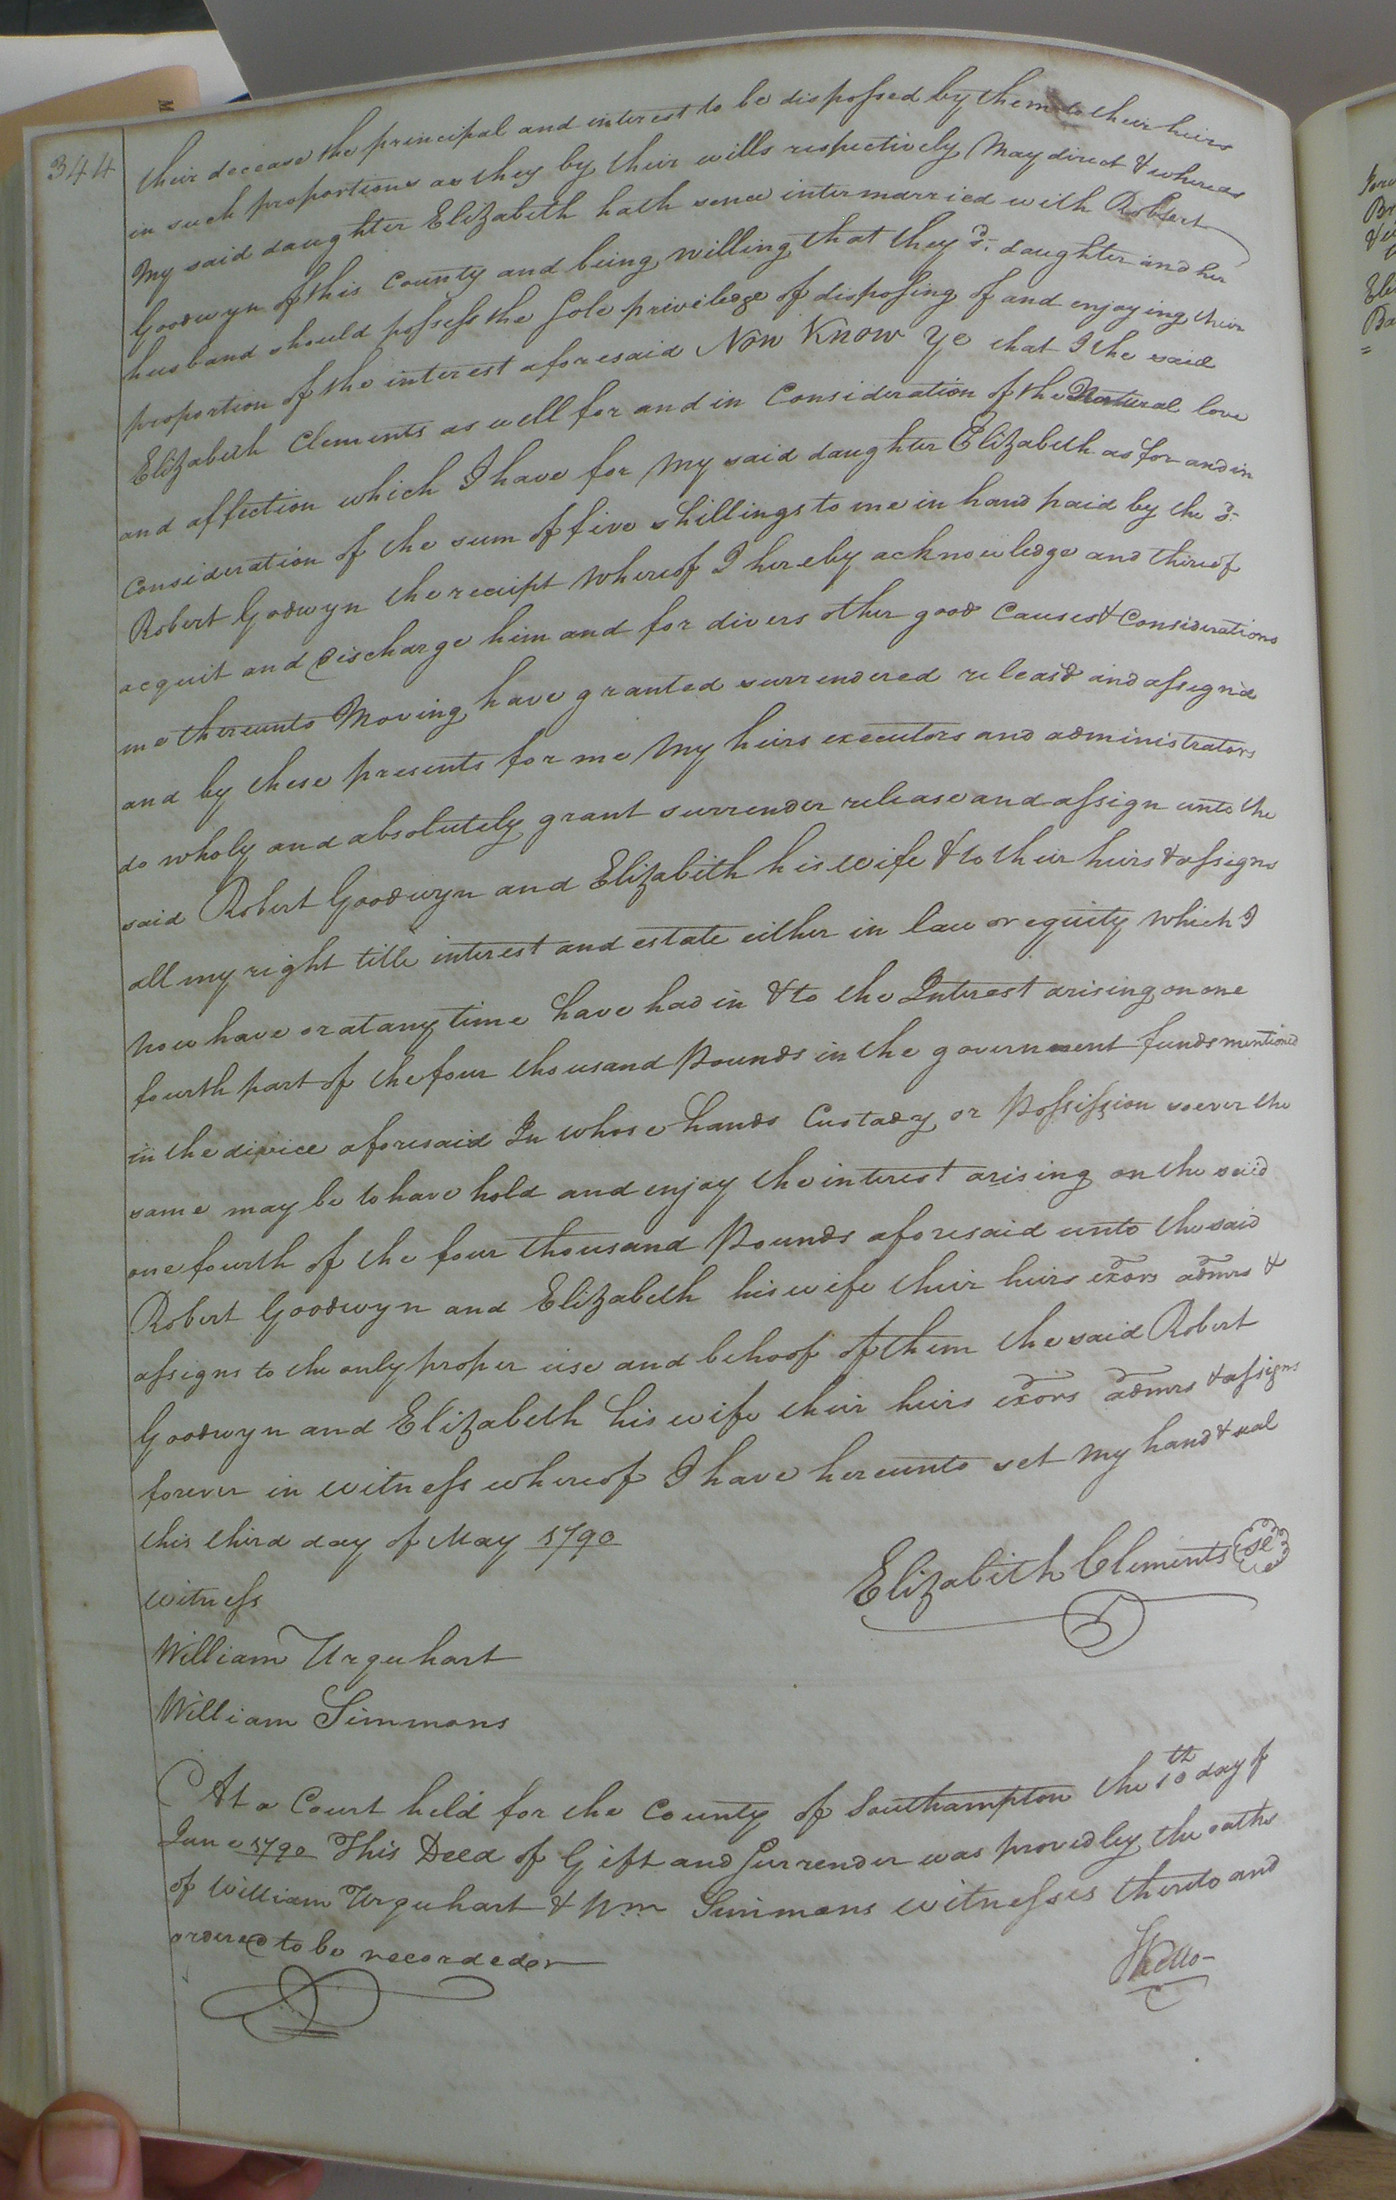 344
their decease the principal and interest to be disposed by them to their heirs
in such proportions as they by their wills respectively May direct & whereas
My said daughter Elizabeth hath sence intermarried with Robert
Goodwyn of this County and being willing that they sd. daughter and her
husband should possess the Sole priviledge of disposing of and enjoying their
proportion of the interest aforesaid Now Know Ye that I the said
Elizabeth Clements as well for and in Consideration of the Natural love
and affection which I have for My said daughter Elizabeth as for and in
Consideration of the sum of five shillings to me in hand paid by the sd.
Robert Godwyn the receipt Whereof I hereby acknowledge and thereof
acquit and discharge him and for divers other good Causes & Considerations
me thereunto Moving have granted surrendered releasd and assignd
and by these presents for me My heirs executors and administrators
do wholy and absolutely grant surrender release and assign unto the
said Robert Goodwyn and Elizabeth his wife & to their heirs & assigns
all my right title interest and estate either in law or equity Which I
Now have or at any time have had in & to the Interest arising on one
fourth part of the four thousand Pounds in the government funds mentioned
in the divice aforesaid In whose hands Custady or Possission soever the
same may be to have hold and enjoy the interest arising on the said
one fourth of the four thousand Pounds aforesaid unto the said
Robert Goodwyn and Elizabeth his wife their heirs exors admrs &
assigns to the only proper use and behoof of them the said Robert
Goodwyn and Elizabeth his wife their heirs exors admrs & assigns
forever in witness whereof I have hereunto set My hand & seal
this third day of May 1790
Elizabeth Clements Se
witness
William Urquhart
William Simmons
At a Court held for the County of Southampton the 10th day of
June 1790 This Deed of Gift and Surrender was proved by the oaths
of William Urquhart & Wm Simmons witnesses thereto and
ordered to be recorded